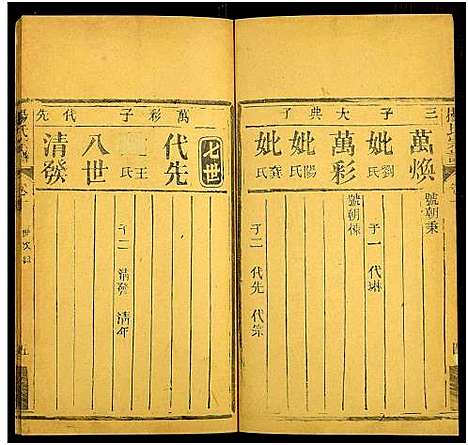 三子 大典子
萬煥
號朝秉
妣劉氏
子一 代琳
萬彩
號朝棟
妣陽氏
妣龔氏
子二 代先 代宗
萬彩子 代先
七世
代先
王氏
子二 清發 清年
八世
清發